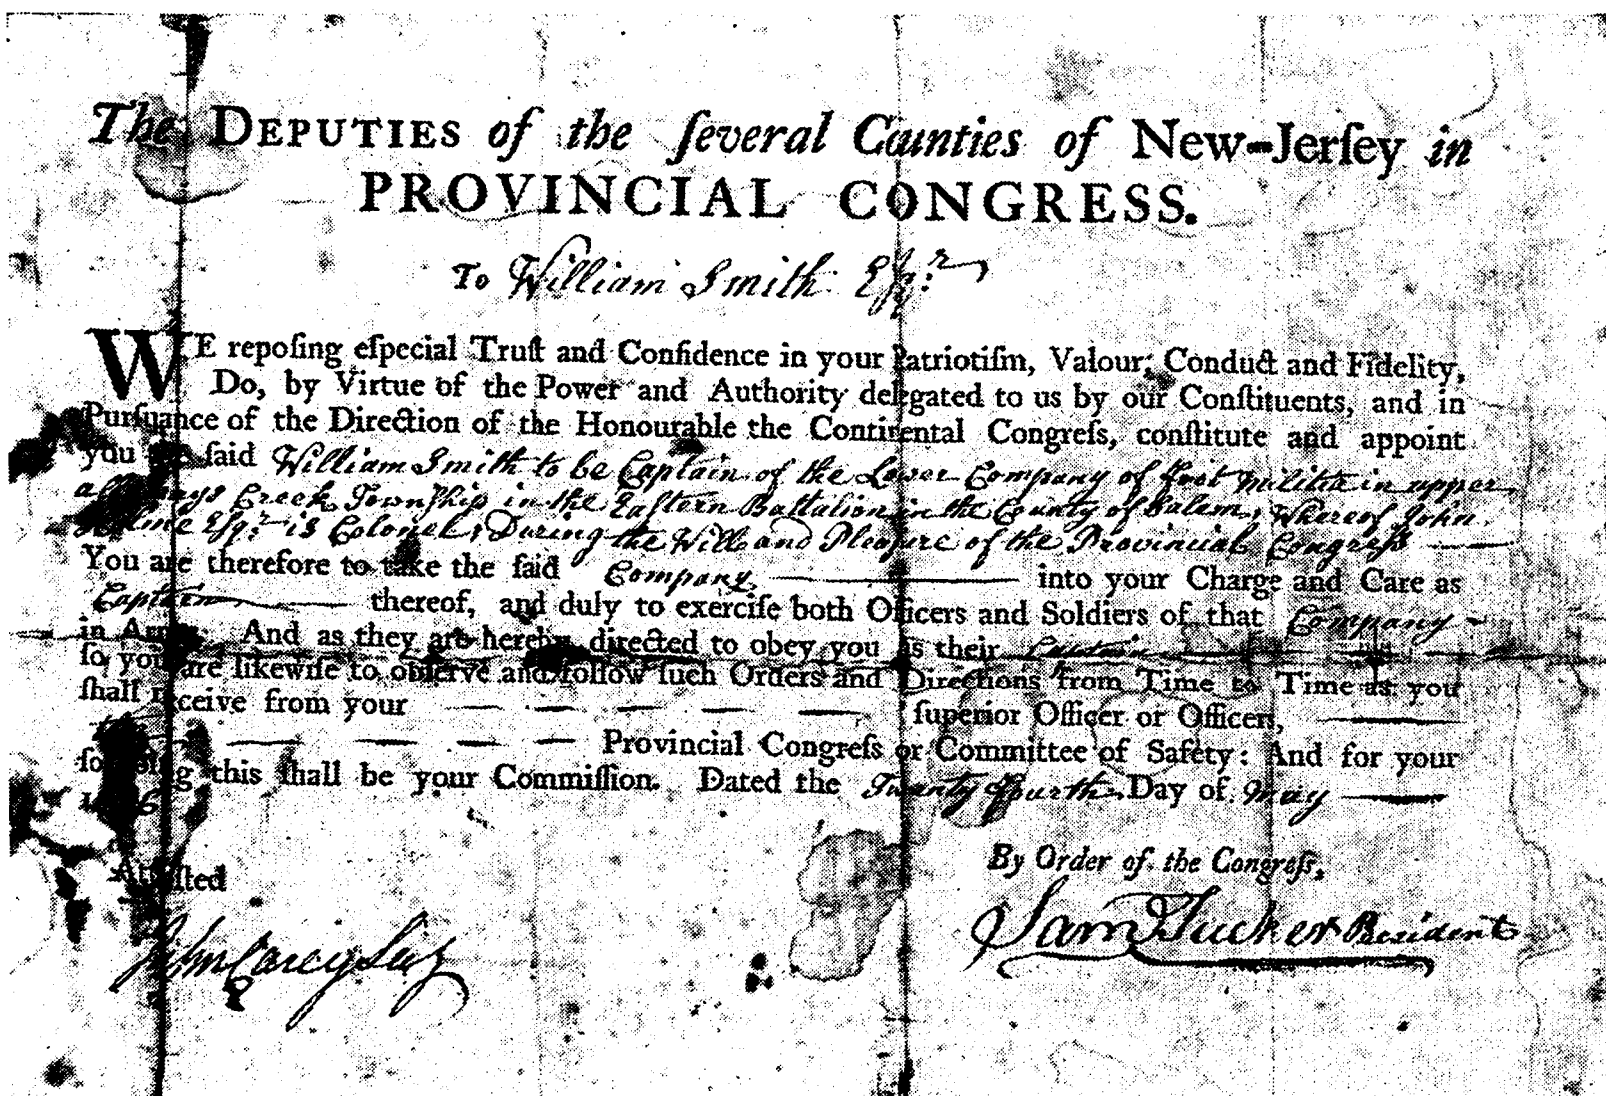 The DEPUTIES of the ſeveral Counties of New-Jerſey in
PROVINCIAL CONGRESS.
To William Smith Eſqr.
WE repoſing eſpecial Truſt and Confidence in your Patriotiſm, Valour, Conduct and Fidelity,
Do, by Virtue of the Power and Authority delegated to us by our Conſtituents, and in
Purſuance of the Direction of the Honourable the Continental Congreſs, conſtitute and appoint
you the ſaid William Smith to be Captain of the Lower Company of foot militia in upper
Creek Township in the Eaſtern Battalion in the County of Salem, Whereof John
Eſqr. is Colonel; During the Will and Pleaſure of the Provincial Congreſs
You are therefore to take the ſaid Company into your Charge and Care as
Captain thereof, and duly to exerciſe both Officers and Soldiers of that Company
in Arms. And as they are hereby directed to obey you as their Captain
ſo you are likewiſe to obſerve and follow ſuch Orders and Directions from Time to Time as you
ſhall receive from your ſuperior Officer or Officers,
Provincial Congreſs or Committee of Safety: And for your
ſo doing this ſhall be your Commiſſion. Dated the Twenty Fourth Day of May
By Order of the Congreſs,
Atteſted
Sam Tucker President
John Carey